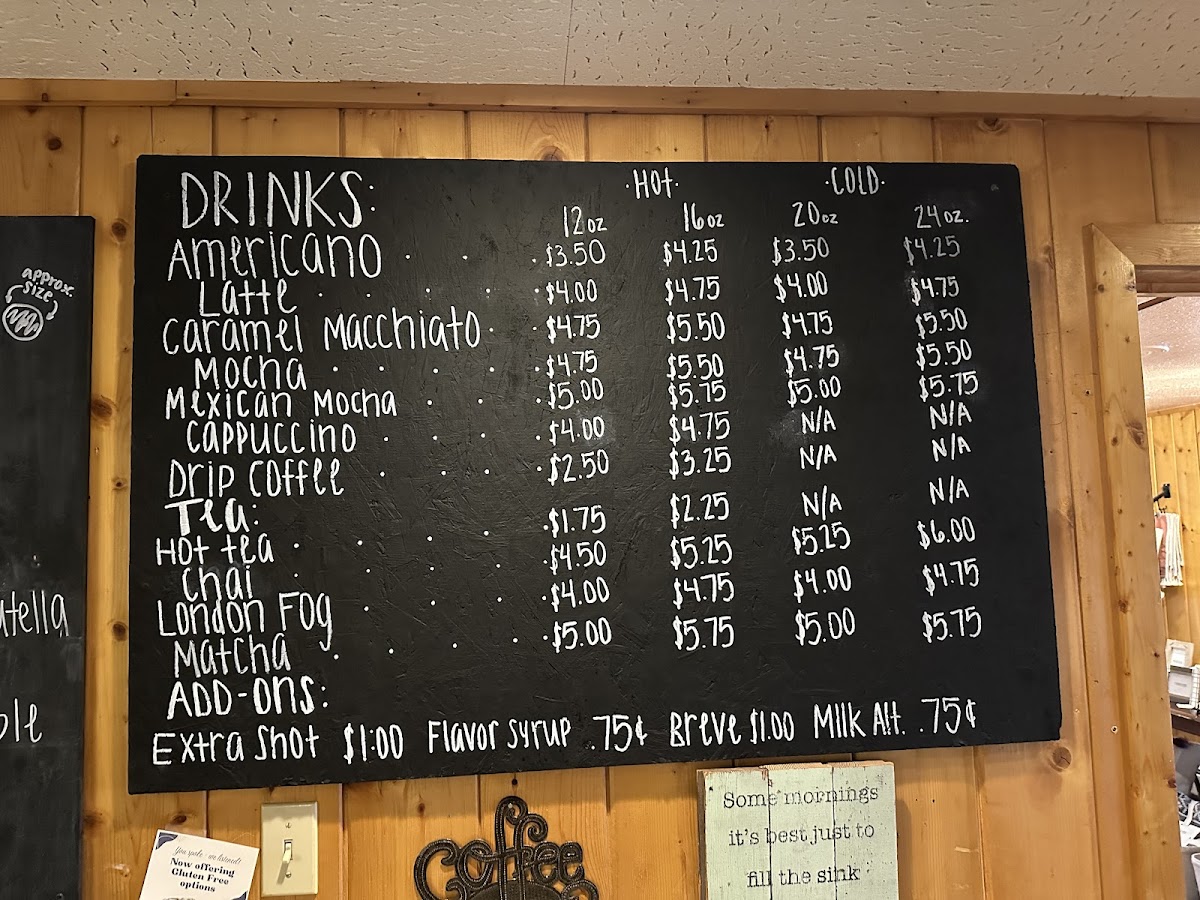 approx.
size
utella
ble
DRINKS:
·HOT· ·COLD·
12oz 16oz 20oz 24oz.
Americano . . . $3.50 $4.25 $3.50 $4.25
Latte . . . . . $4.00 $4.75 $4.00 $4.75
Caramel Macchiato . . $4.75 $5.50 $4.75 $5.50
Mocha . . . . . $4.75 $5.50 $4.75 $5.50
Mexican Mocha . . . $5.00 $5.75 $5.00 $5.75
Cappuccino . . . . $4.00 $4.75 N/A N/A
Drip Coffee . . . . $2.50 $3.25 N/A N/A
Tea:
Hot tea . . . . . $1.75 $2.25 N/A N/A
Chai . . . . . $4.50 $5.25 $5.25 $6.00
London Fog . . . . $4.00 $4.75 $4.00 $4.75
Matcha . . . . . $5.00 $5.75 $5.00 $5.75
ADD-ONS:
Extra Shot $1.00 Flavor Syrup .75¢ Breve $1.00 Milk Alt. .75¢
You spoke - we listened!
Now offering
Gluten Free
options
Coffee
Some mornings
it's best just to
fill the sink